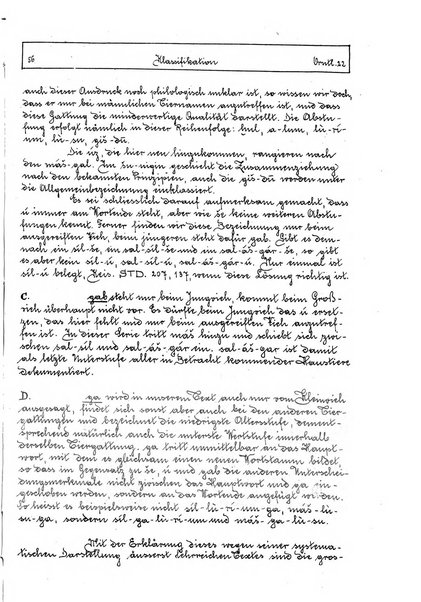 56 Klassifikation Ornt. 22
auch dieser Ausdruck noch philologisch unklar ist, so wissen wir doch,
dass er nur bei männlichen Tiernamen anzutreffen ist, und dass
diese Gattung die minderwertige Qualität darstellt. Die Abstu-
fung erfolgt nämlich in dieser Reihenfolge: bul, a-lum, lù-ri-
um, lù-su, giš-dù.
Die uz, die hier neu hinzukommen, rangieren nach
den máš-gal. Im su-nigin geschieht die Zusammenziehung
nach den bekannten Prinzipien, auch die giš-dù werden unter
die Allgemeinbezeichnung einklassiert.
Es sei schliesslich darauf aufmerksam gemacht, dass
ú immer am Wortende steht, aber wie še keine weiteren Abstu-
fungen kennt. Ferner finden wir diese Bezeichnung nur beim
ausgereiften Vieh, beim jüngeren steht dafür gab. Gibt es dem-
nach ein sil-še, ein sal-sil-še und ein sal-áš-gàr-še, so gibt
es aber kein sil-ú, sal-sil-ú, sal-áš-gàr-ú. Nur einmal ist
sil-ú belegt, Reis. STD. 207, 187, wenn diese Lösung richtig ist.
C. gab steht nur beim Jungvieh, kommt beim Groß-
vieh überhaupt nicht vor. Es dürfte beim Jungvieh das ú erset-
zen, das hier fehlt und nur beim ausgereiften Vieh anzutref-
fen ist. In dieser Serie tritt máš hinzu und schiebt sich zwi-
schen sal-sil und sal-áš-gàr ein. sal-áš-gàr ist damit
als letzte Unterstufe aller in Betracht kommender Haustiere
dokumentiert.
D. ga wird in unserem Text auch nur vom Kleinvieh
ausgesagt, findet sich sonst aber auch bei den anderen Tier-
gattungen und bezeichnet die niedrigste Altersstufe, dement-
sprechend natürlich auch die unterste Wertstufe innerhalb
derselben Tiergattung. ga tritt unmittelbar an das Haupt-
wort, mit dem es gleichsam einen neuen Wortstamm bildet,
so dass im Gegensatz zu še, ú und gab die anderen Unterschei-
dungsmerkmale nicht zwischen das Hauptwort und ga ein-
geschoben werden, sondern an das Wortende angefügt werden.
So heisst es beispielsweise nicht sil-lù-ri-um-ga, máš-lù-
su-ga, sondern sil-ga-lù-ri-um und máš-ga-lù-su.
Mit der Erklärung dieses wegen seiner systema-
tischen Darstellung äusserst lehrreichen Textes sind die gros-